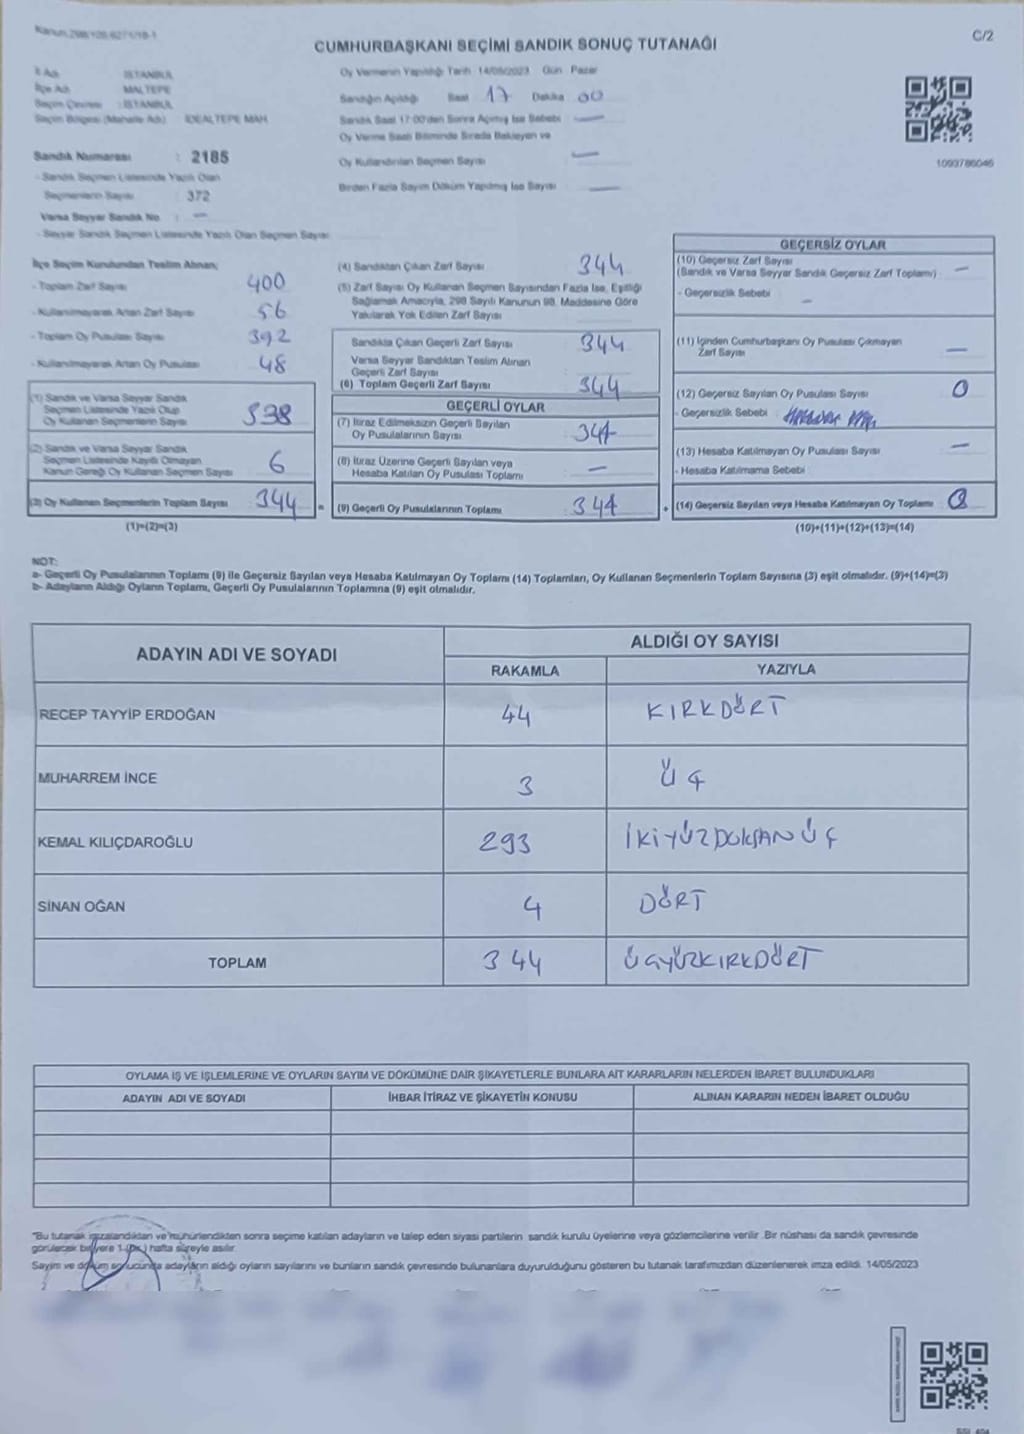 Kanun 298/105-6271/18-1
CUMHURBAŞKANI SEÇİMİ SANDIK SONUÇ TUTANAĞI
C/2
İl Adı İSTANBUL
İlçe Adı MALTEPE
Seçim Çevresi : İSTANBUL
Seçim Bölgesi (Mahalle Adı) : İDEALTEPE MAH
Sandık Numarası : 2185
- Sandık Seçmen Listesinde Yazılı Olan
Seçmenlerin Sayısı : 372
Varsa Seyyar Sandık No : —
- Seyyar Sandık Seçmen Listesinde Yazılı Olan Seçmen Sayısı
Oy Vermenin Yapıldığı Tarih 14/05/2023 Gün Pazar
Sandığın Açıldığı Saat 17 Dakika 00
Sandık Saat 17:00'den Sonra Açılmış İse Sebebi —
Oy Verme Saati Bitiminde Sırada Bekleyen ve
Oy Kullandırılan Seçmen Sayısı —
Birden Fazla Sayım Döküm Yapılmış İse Sayısı —
1093786046
İlçe Seçim Kurulundan Teslim Alınan;
- Toplam Zarf Sayısı 400
- Kullanılmayarak Artan Zarf Sayısı 56
- Toplam Oy Pusulası Sayısı 392
- Kullanılmayarak Artan Oy Pusulası 48
(1) Sandık ve Varsa Seyyar Sandık
Seçmen Listesinde Yazılı Olup
Oy Kullanan Seçmenlerin Sayısı 338
(2) Sandık ve Varsa Seyyar Sandık
Seçmen Listesinde Kayıtlı Olmayan
Kanun Gereği Oy Kullanan Seçmen Sayısı 6
(3) Oy Kullanan Seçmenlerin Toplam Sayısı 344 =
(1)+(2)=(3)
(4) Sandıktan Çıkan Zarf Sayısı 344
(5) Zarf Sayısı Oy Kullanan Seçmen Sayısından Fazla İse, Eşitliği
Sağlamak Amacıyla, 298 Sayılı Kanunun 98. Maddesine Göre
Yakılarak Yok Edilen Zarf Sayısı
Sandıkta Çıkan Geçerli Zarf Sayısı 344
Varsa Seyyar Sandıktan Teslim Alınan
Geçerli Zarf Sayısı
(6) Toplam Geçerli Zarf Sayısı 344
GEÇERLİ OYLAR
(7) İtiraz Edilmeksizin Geçerli Sayılan
Oy Pusulalarının Sayısı 344
(8) İtiraz Üzerine Geçerli Sayılan veya
Hesaba Katılan Oy Pusulası Toplamı —
(9) Geçerli Oy Pusulalarının Toplamı 344 +
GEÇERSİZ OYLAR
(10) Geçersiz Zarf Sayısı
(Sandık ve Varsa Seyyar Sandık Geçersiz Zarf Toplamı) —
- Geçersizlik Sebebi —
(11) İçinden Cumhurbaşkanı Oy Pusulası Çıkmayan
Zarf Sayısı —
(12) Geçersiz Sayılan Oy Pusulası Sayısı 0
- Geçersizlik Sebebi
(13) Hesaba Katılmayan Oy Pusulası Sayısı —
- Hesaba Katılmama Sebebi
(14) Geçersiz Sayılan veya Hesaba Katılmayan Oy Toplamı 0
(10)+(11)+(12)+(13)=(14)
NOT:
a- Geçerli Oy Pusulalarının Toplamı (9) ile Geçersiz Sayılan veya Hesaba Katılmayan Oy Toplamı (14) Toplamları, Oy Kullanan Seçmenlerin Toplam Sayısına (3) eşit olmalıdır. (9)+(14)=(3)
b- Adayların Aldığı Oyların Toplamı, Geçerli Oy Pusulalarının Toplamına (9) eşit olmalıdır.
ADAYIN ADI VE SOYADI
ALDIĞI OY SAYISI
RAKAMLA YAZIYLA
RECEP TAYYİP ERDOĞAN 44 KIRKDÖRT
MUHARREM İNCE 3 ÜÇ
KEMAL KILIÇDAROĞLU 293 İKİYÜZDOKSANÜÇ
SİNAN OĞAN 4 DÖRT
TOPLAM 344 ÜÇYÜZKIRKDÖRT
OYLAMA İŞ VE İŞLEMLERİNE VE OYLARIN SAYIM VE DÖKÜMÜNE DAİR ŞİKAYETLERLE BUNLARA AİT KARARLARIN NELERDEN İBARET BULUNDUKLARI
ADAYIN ADI VE SOYADI İHBAR İTİRAZ VE ŞİKAYETİN KONUSU ALINAN KARARIN NEDEN İBARET OLDUĞU
"Bu tutanak imzalandıktan ve mühürlendikten sonra seçime katılan adayların ve talep eden siyasi partilerin sandık kurulu üyelerine veya gözlemcilerine verilir. Bir nüshası da sandık çevresinde
görülecek bir yere 1 (Bir) hafta süreyle asılır.
Sayım ve döküm sonucunda adayların aldığı oyların sayılarını ve bunların sandık çevresinde bulunanlara duyurulduğunu gösteren bu tutanak tarafımızdan düzenlenerek imza edildi. 14/05/2023